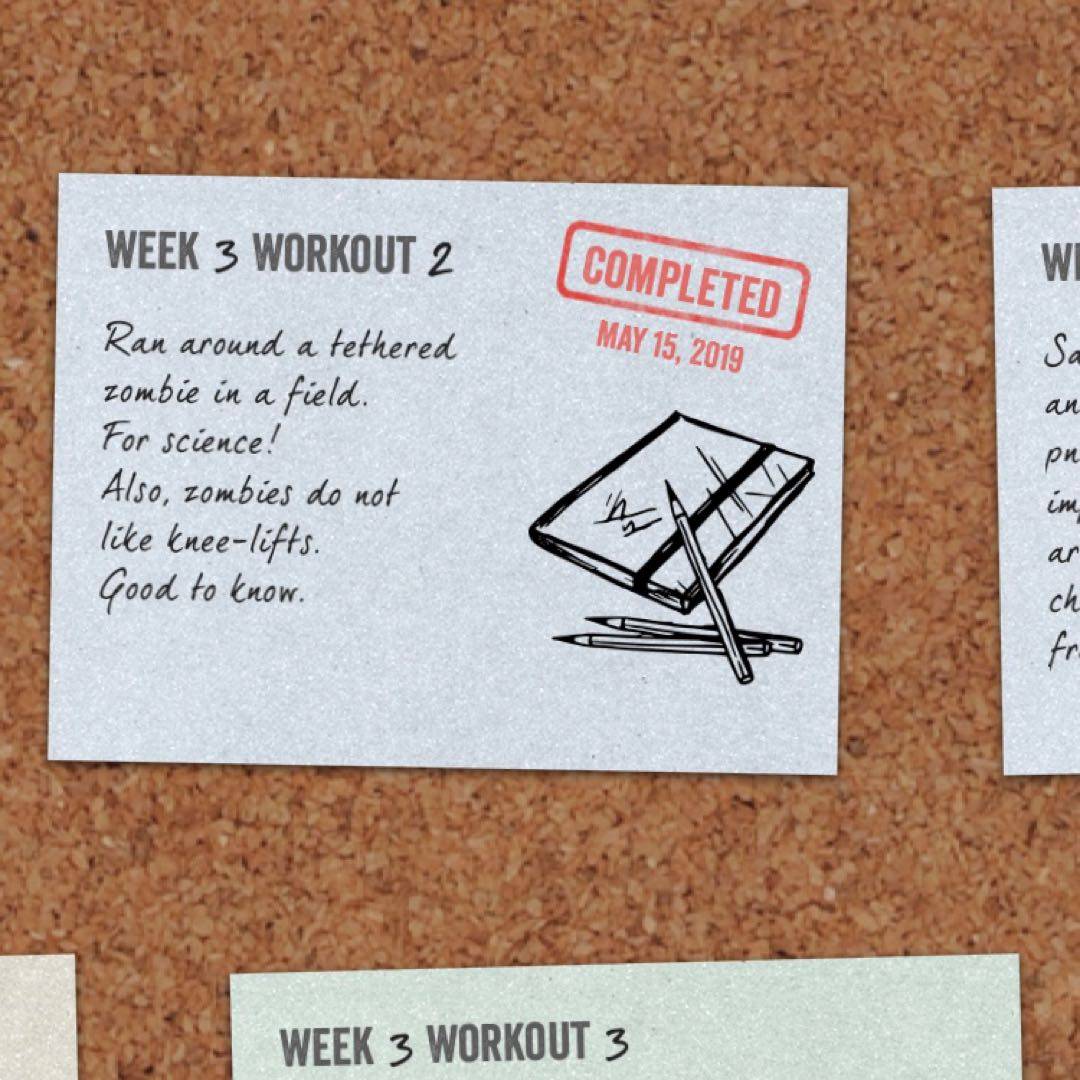 WEEK 3 WORKOUT 2
COMPLETED
MAY 15, 2019
Ran around a tethered
zombie in a field.
For science!
Also, zombies do not
like knee-lifts.
Good to know.
an
ar
WEEK 3 WORKOUT 3